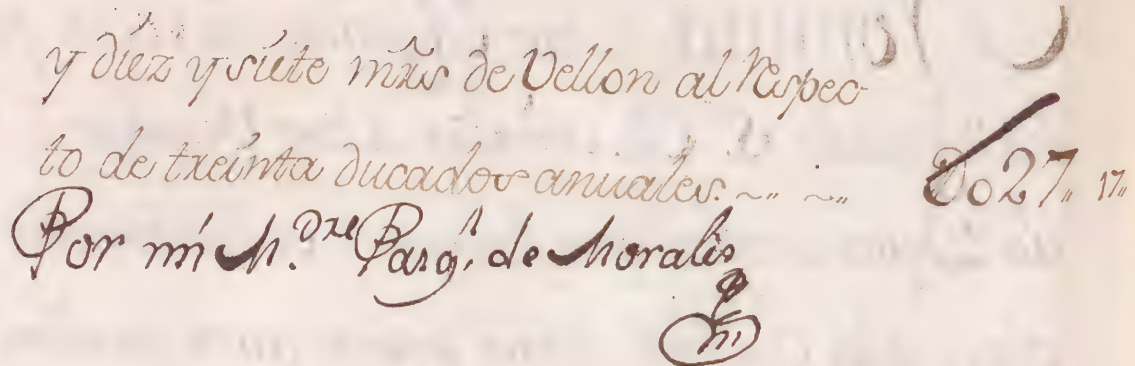 y diez y siete mŕs de Vellon al respec
to de treinta ducados anuales. ~.. ~.. 027,, 17,,
Por mi M.dre Parql. de Moralis